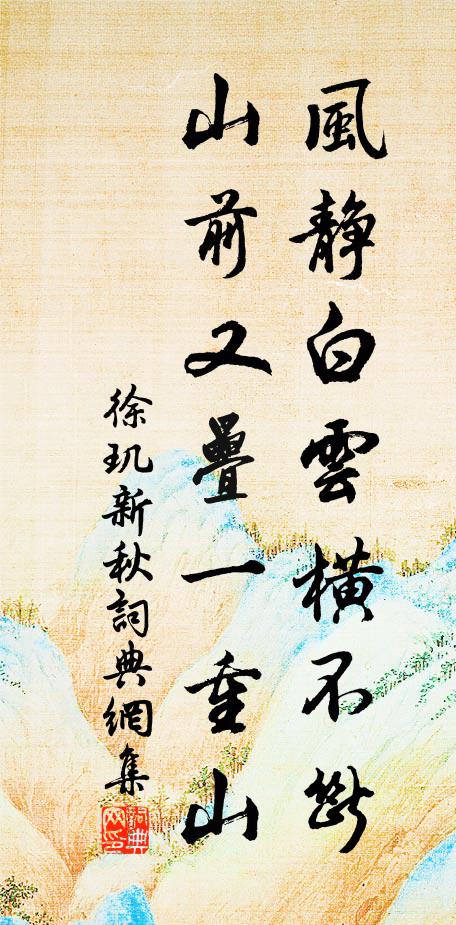 風靜白雲橫不斷
山前又疊一重山
徐玑新秋詞典網集
詞典